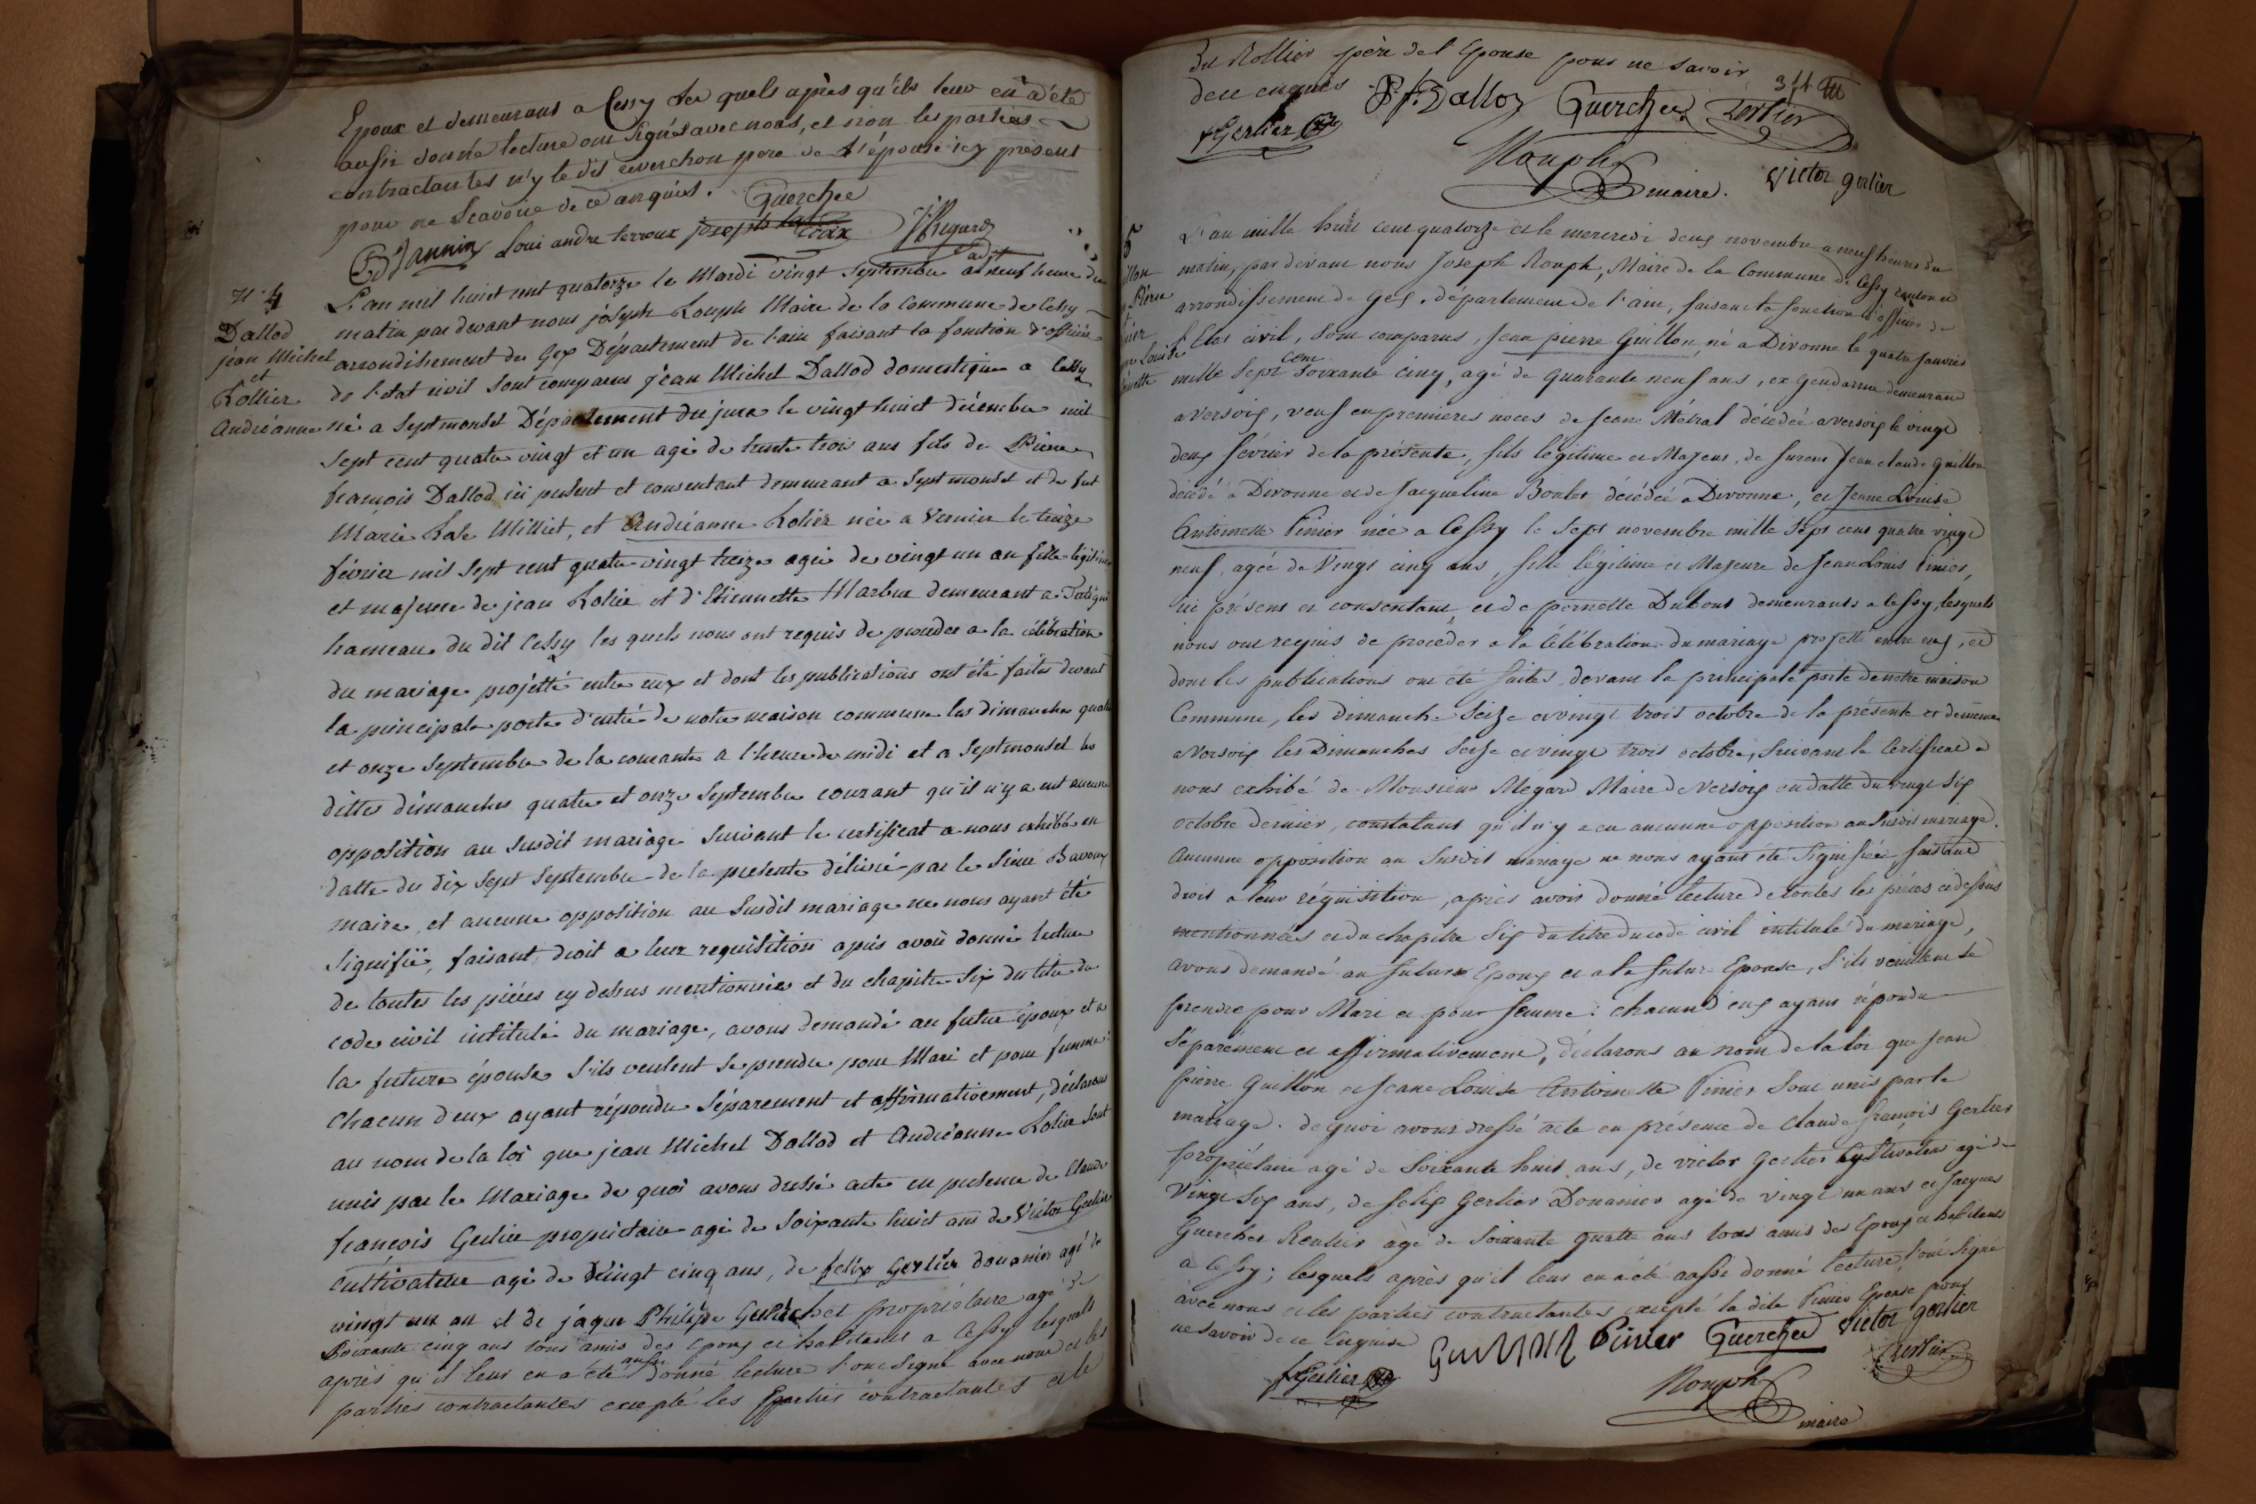 Epoux et demeurans a Cessy les quels après qu'ils leur en a été
aussi donné lecture ont signés avec nous, et non les parties
contractantes n'y le dit reverchon pere de l'épouse icy present
pour ne Scavoire de ce anquis. Guerchee
Jannin Loui andre terroux joseph la Croix J Regard
N° 4
Dallod
jean Michel
et
Rollier
Andréanne
L'an mil huit cent quatorze le Mardi vingt Septembre à neuf heure du
matin par devant nous joseph Rouph Maire de la Commune de Cessy
arrondissement de Gex Département de l'ain faisant la fonction d'officier
de l'état civil sont comparus jean Michel Dallod domestique a Cessy
né a Septmonsel Département du jura le vingt huit décembre mil
sept cent quatre vingt et un agé de trente trois ans fils de Pierre
françois Dallod ici présent et consentant demeurant a Septmonsel et de fut
Marie Rose Milliet, et Andréanne Rolier née a Vernier le treize
février mil sept cent quatre vingt treize agée de vingt un an fille légitime
et majeure de jean Rolier et d'Etiennette Marbou demeurant a
hameau du dit Cessy les quels nous ont requis de proceder a la célébration
du mariage projetté entre eux et dont les publications ont été faites devant
la principale porte d'entrée de notre maison commune les dimanches quatre
et onze Septembre de la courante a l'heure de midi et a Septmonsel les
dittes dimanches quatre et onze Septembre courant qu'il n'y a eut aucune
opposition au susdit mariage suivant le certificat a nous exhibé en
datte du dix sept Septembre de la presente délivré par le Sieur Bavoux
maire et aucune opposition au susdit mariage ne nous ayant été
signifié, faisant droit a leur requisition apres avoir donné lecture
de toutes les pièces cy dessus mentionnées et du chapitre Six du titre du
code civil intitulé du mariage, avons demandé au futur époux et a
la future épouse s'ils veulent se prendre pour Mari et pour femme
chacun deux ayant répondu séparement et affirmativement, déclarons
au nom de la loi que jean Michel Dallod et Andréanne Rolier sont
unis par le Mariage de quoi avons dressé acte en presence de Claude
françois Gerlier proprietaire agé de soixante huit ans de Victor Gerlier
cultivateur agé de vingt cinq ans, de felix Gerlier douanier agé de
vingt un an et de jaque Philipe Guerchet propriétaire agé de
Soixante cinq ans tous amis des Epoux et habitants a Cessy lesquels
après qu'il leur en a été aussi donné lecture l'ont signé avec nous et les
parties contractantes excepté les parties contractantes et le
du Rollier père de l'Epouse pour ne savoir
de ce enquis P f Dalloz Guerchee Gerlier
f Gerlier
Rouph
maire. Victor gerlier
L'an mille huit cent quatorze et le mercredi deux novembre a neuf heures du
matin, par devant nous Joseph Rouph, Maire de la Commune de Cessy canton et
arrondissement de Gex, département de l'ain, faisant la fonction d'officier de
l'Etat civil, sont comparus, Jean pierre Guillon, né a Divonne le quatre Janvier
mille Sept cent Soixante cinq, agé de quarante neuf ans, ex gendarme demeurant
a Versoix, veuf en premieres noces de Jeane Métral décédée a Versoix le vingt
deux février de la présente, fils légitime et Majeur de furent Jean claude guillon
décédé a Divonne et de Jacqueline Boulet décédée a Divonne, et Jeane Louise
Antoinette Pinier née a Cessy le Sept novembre mille Sept cent quatre vingt
neuf, agée de Vingt cinq ans, fille légitime et Majeure de Jean Louis Pinier,
ici présent et consentant, et de pernette Dubout demeurants a Cessy, lesquels
nous ont requis de procéder a la Célébration du mariage projetté entre eux, et
dont les publications ont été faites devant la principale porte de notre maison
Commune, les dimanche Seize et vingt trois octobre de la présente et de meme
a Versoix les Dimanches Seize et vingt trois octobre, Suivant le Certificat a
nous exhibé de Monsieur Megard Maire de Versoix en datte du vingt Six
octobre dernier, constatant qu'il n'y a eu aucunne opposition au Susdit mariage.
Aucunne opposition au Susdit mariage ne nous ayant été Signifiée, faisant
droit a leur réquisition, après avoir donné lecture de toutes les pièces ci dessus
mentionnées et du chapitre Six du titre du code civil intitulé du mariage,
avons demandé au futur Epoux et a la future Epouse, S'ils veuillent se
prendre pour Mari et pour femme: chacun d'eux ayant répondu
Séparément et affirmativement, déclarons au nom de la loi que Jean
pierre Guillon et Jeane Louise Antoinette Pinier Sont unis par le
mariage. de quoi avons dressé acte en présence de Claude françois Gerlier
propriétaire agé de Soixante huit ans, de victor Gerlier Cultivateur agé de
Vingt Six ans, de félix Gerlier Douanier agé de vingt un ans et Jacques
Guerchet Rentier agé de Soixante quatre ans tous amis des Epoux et habitants
a Cessy; lesquels après qu'il leur en a été aussi donné lecture l'ont Signé
avec nous et les parties contractantes excepté la dite Pinier Epouse pour
ne savoir de ce Enquise Guillon Pinier Guerchee victor gerlier
f Gerlier Rouph Gerlier
maire